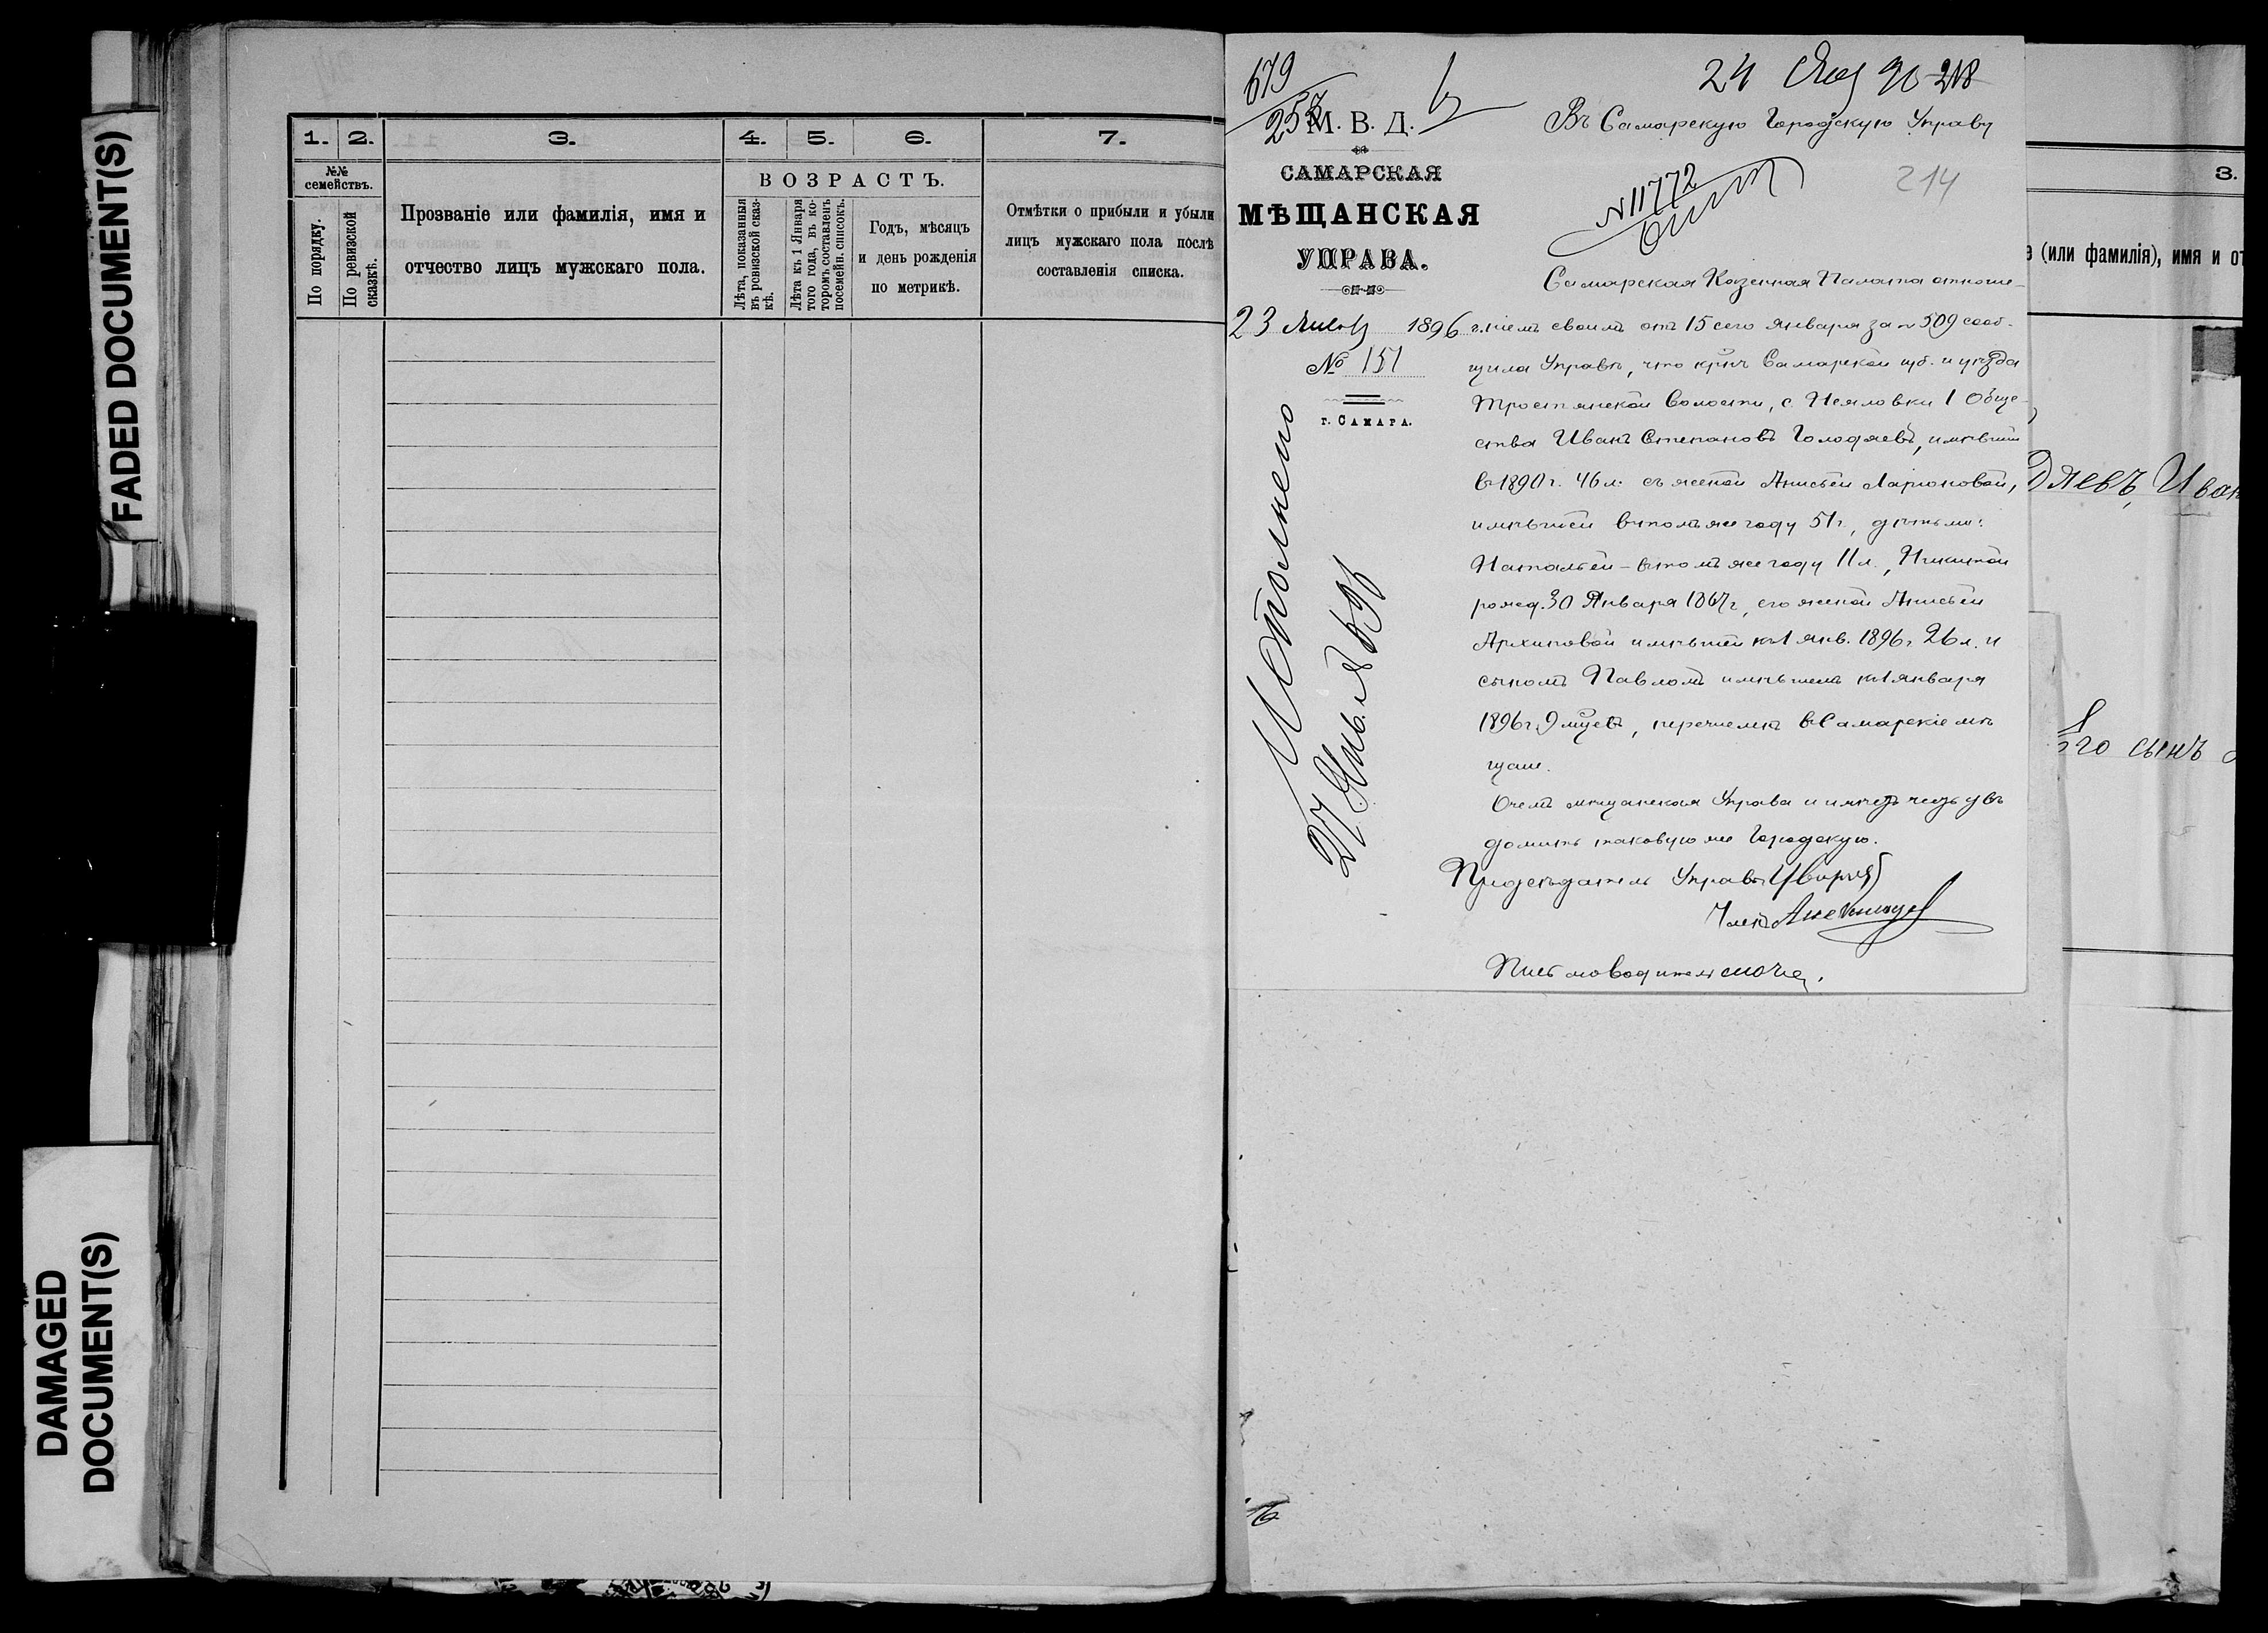 FADED DOCUMENT(S)
DAMAGED
DOCUMENT(S)
1. 2. 3. 4. 5. 6. 7.
№№
семействъ.
По порядку.
По ревизской
сказкѣ.
Прозваніе или фамилія, имя и
отчество лицъ мужскаго пола.
ВОЗРАСТЪ.
Лѣта, показанныя
въ ревизской сказ-
кѣ.
Лѣта къ 1 Января
того года, въ ко-
торомъ составленъ
посемейн. списокъ.
Годъ, мѣсяцъ
и день рожденія
по метрикѣ.
Отмѣтки о прибыли и убыли
лицъ мужскаго пола послѣ
составленія списка.
679
М. В. Д.
САМАРСКАЯ
МѢЩАНСКАЯ
УПРАВА.
23 Января 1896 г.
№ 151
г. САМАРА.
Исполнено
27 Января 96
24 Янв 96 218
Въ Самарскую Городскую Управу
214
N 11772
Самарская Казенная Палата отноше-
ніемъ своимъ отъ 15 сего Января за № 509 сооб-
щила Управѣ, что кр-нъ Самарской губ. и уѣзда
Тростянской Волости, с. Неяловки 1 Обще-
ства Иванъ Степановъ Голодяевъ, имѣвшій
въ 1890 г. 46 л. съ женой Анисьей Ларіоновой,
имѣвшей въ томъ же году 51 г., дѣтьми:
Натальей - въ томъ же году 11 л., Никитой
рожд. 30 Января 1867 г, его женой Анисьей
Архиповой имѣвшей къ 1 янв. 1896 г. 26 л. и
сыномъ Павломъ имѣвшемъ къ 1 января
1896 г. 9 мцевъ, перечисленъ въ Самарскіе мѣ
щане.
О чемъ мѣщанская Управа и имѣетъ честь увѣ
домить таковую же Городскую.
Предсѣдатель Управы
Членъ
Письмоводитель
3.
е (или фамилія), имя и от
дяевъ, Иван
Его сынъ